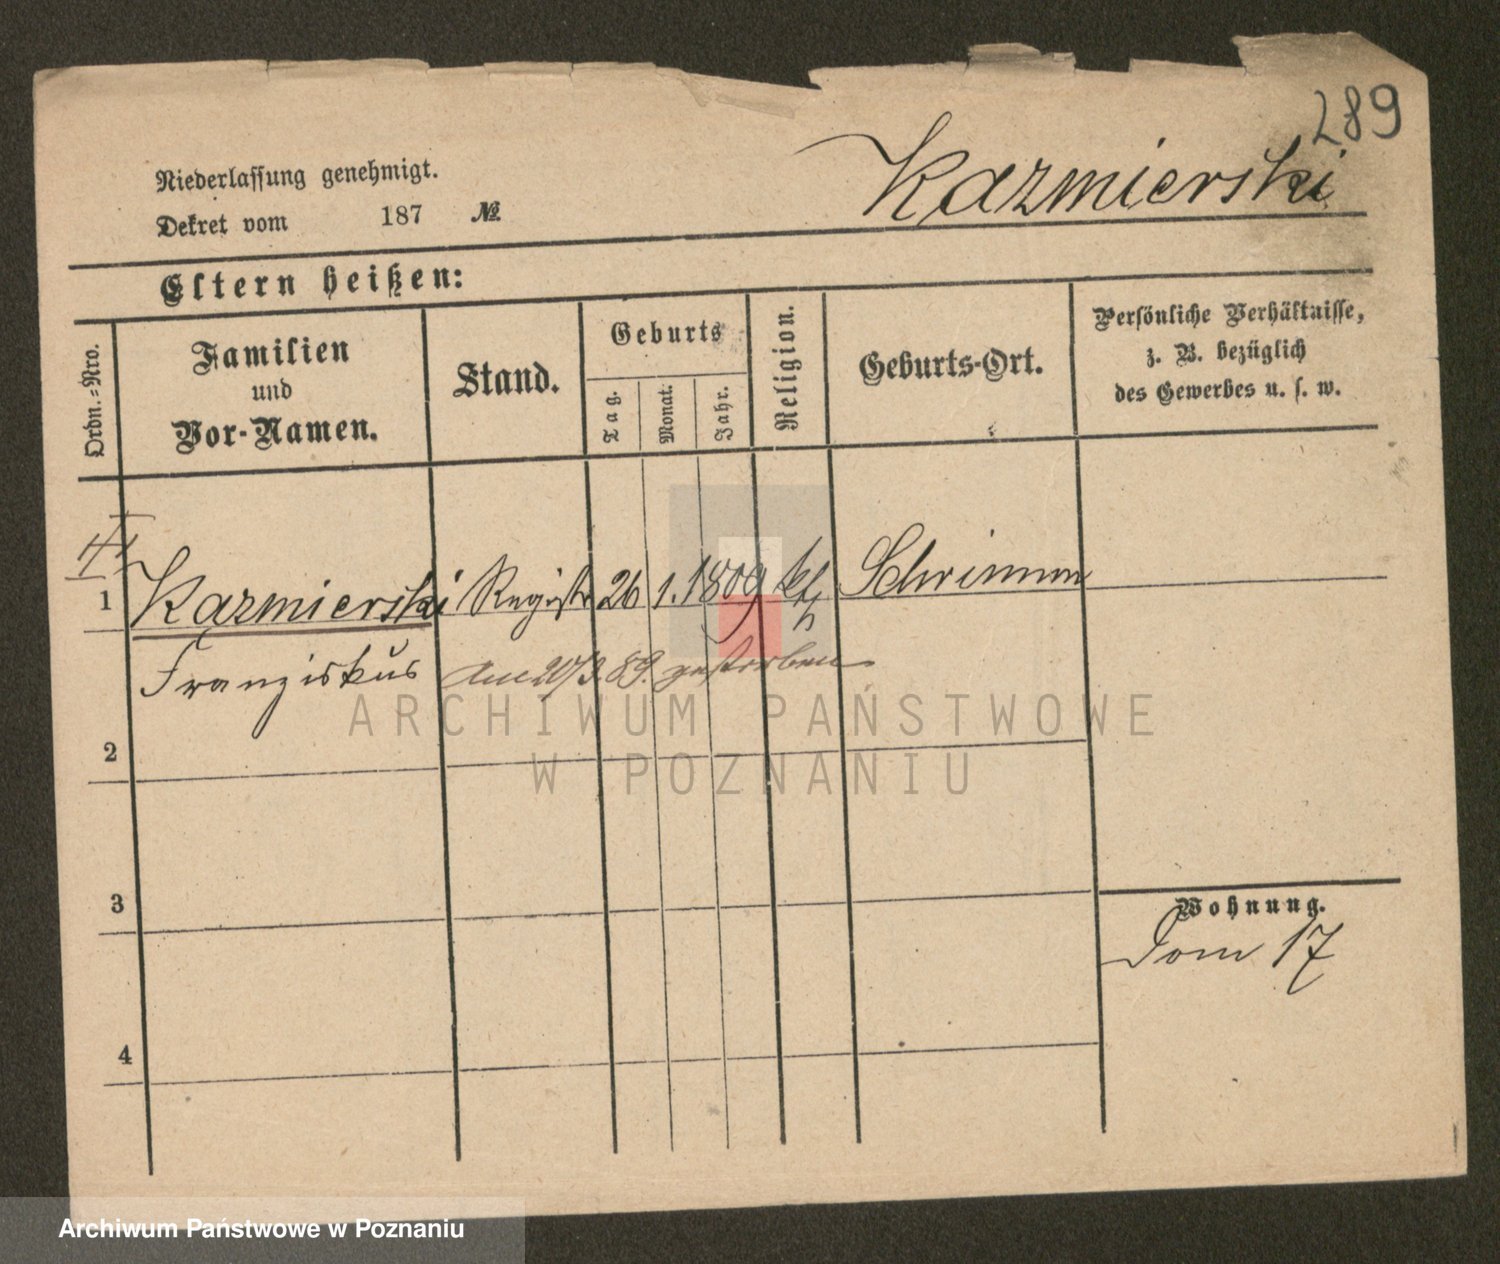 289
Kazmierski
Niederlassung genehmigt.
Dekret vom 187 №
Eltern heißen:
Ordn.-Nro.
Familien
und
Vor-Namen.
Stand.
Geburts
Tag.
Monat.
Jahr.
Religion.
Geburts-Ort.
Persönliche Verhältnisse,
z. B. bezüglich
des Gewerbes u. s. w.
1 Kazmierski Registr 26 1. 1809 kth Schrimm
Franziskus am 20/3. 89. gestorben
2
3
4
Wohnung.
Dom 17
ARCHIWUM PAŃSTWOWE
W POZNANIU
Archiwum Państwowe w Poznaniu